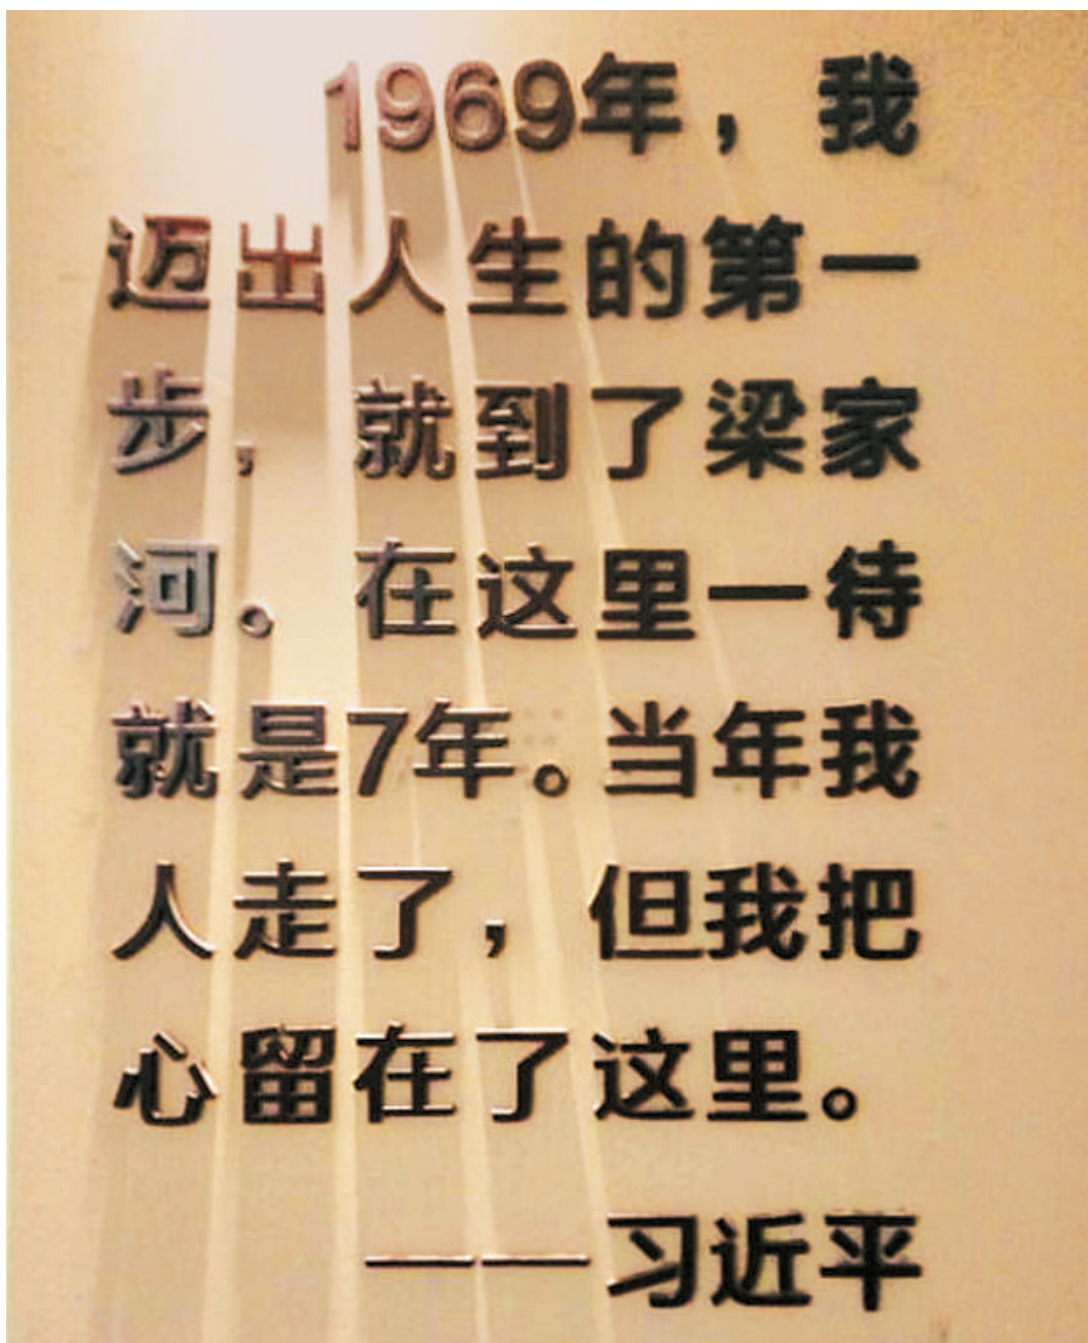 1969年，我
迈出人生的第一
步，就到了梁家
河。在这里一待
就是7年。当年我
人走了，但我把
心留在了这里。
——习近平